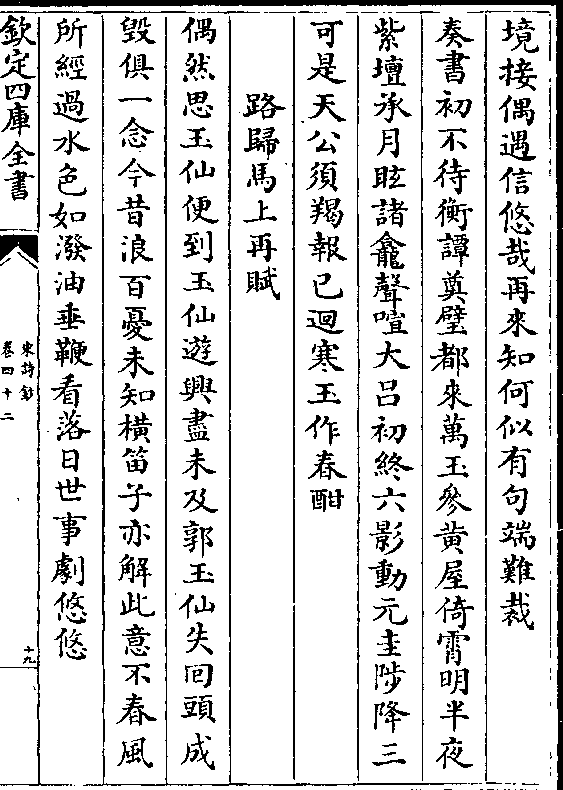 境接偶遇信悠哉再來知何似有句端難裁
奏書初不待衡譚奠璧都來萬玉參黄屋倚霄明半夜
紫壇承月眩諸龕聲喧大吕初終六影動元圭陟降三
可是天公須羯報已迴寒玉作春酣
路歸馬上再賦
偶然思玉仙便到玉仙遊興盡未及郭玉仙失囘頭成
毁俱一念今昔浪百憂未知横笛子亦解此意不春風
所經過水色如潑油垂鞭看落日世事劇悠悠
欽定四庫全書
宋詩鈔
卷四十二
十九